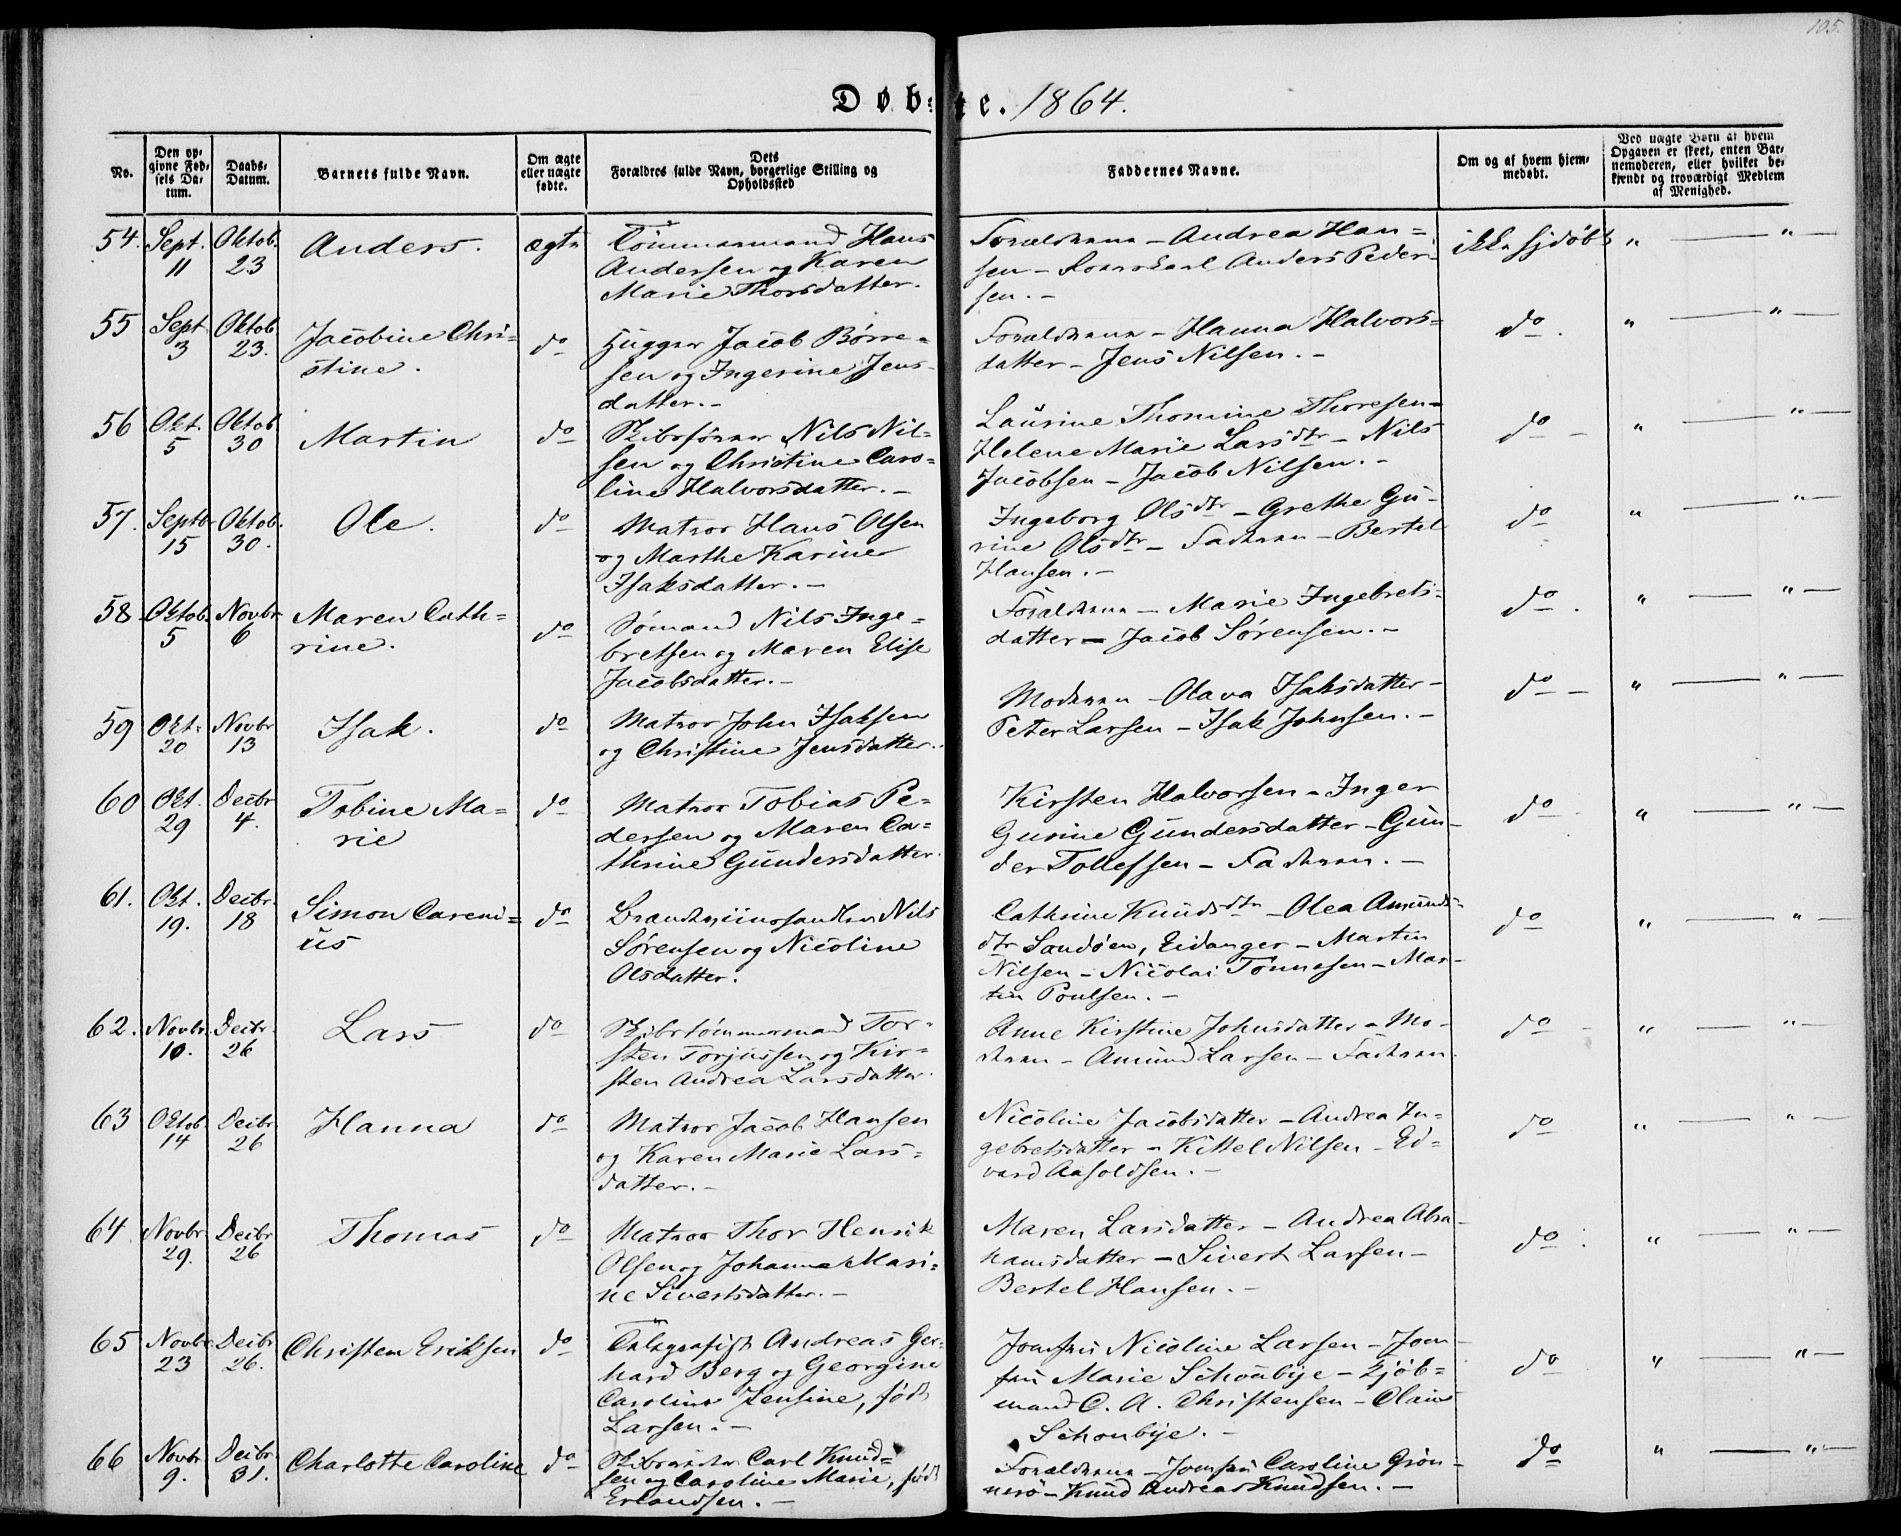 105.
Døbte. 1864.
No.
Den opgivne Fødsels Datum.
Daabs-Datum.
Barnets fulde Navn.
Om ægte eller uægte fødte.
Dets Forældres fulde Navn, borgerlige Stilling og Opholdssted
Faddernes Navne.
Om og af hvem hjemmedøbt.
Ved uægte Børn at hvem Opgaven er skeet, enten Barnemoderen, eller hvilket bekjendt og troværdigt Medlem af Menighed.
54. Sept. 11 Oktob. 23 Anders. ægte
Tømmermand Hans
Andersen og Karen
Marie Thorsdatter.
Forældrene - Andrea Han=
sen - Anders Peder=
sen. -
ikke hjdøbt " — " —
55 Sept 3 Oktob 23. Jacobine Chri=
stine. do
Hugger Jacob Børre=
sen og Ingerine Jens=
datter. -
Forældrene - Hanna Halvors=
datter - Jens Nilsen. -
do. " — " —
56 Okt. 5 Oktob 30 Martin do
Skibsfører Nils Nil=
sen og Christine Caro=
line Halvorsdatter. -
Laurine Thomine Thoresen -
Helene Marie Larsdtr - Nils
Jacobsen - Jacob Nilsen. -
do - " — " —
57. Septbr 15 Oktob. 30. Ole. do
Matros Hans Olsen
og Marthe Karine
Isaksdatter. -
Ingeborg Olsdtr - Grethe Gu=
rine Olsdtr - Faderen - Bertel
Hansen. -
do " — " —
58 Oktob. 5 Novbr 6 Maren Cath=
rine. do
Sømand Nils Inge=
bretsen og Maren Elise
Jacobsdatter. -
Forældrene - Marie Ingebrets=
datter - Jacob Sørensen. -
do. " — " —
59 Okt. 20 Novbr 13 Isak. do
Matros John Isaksen
og Christine Jensdatter.
Moderen - Olava Isaksdatter -
Peter Larsen - Isak Johnsen. -
do - " — " —
60 Okt. 29 Decbr 4. Tobine Ma=
rie do
Matros Tobias Pe=
dersen og Maren Ca=
thrine Gundersdatter.
Kirsten Halvorsen - Inger
Gurine Gundersdatter - Gun=
der Tollefsen - Faderen. -
do - " — " —
61. Okt. 19. Decbr 18 Simon Careni=
us do
Nils
Sørensen og Nicoline
Olsdatter.
Cathrine Knudsdtr - Olea Amunds=
dtr Sandøen, Eidanger - Martin
Nilsen - Nicolai Tønnesen - Mar=
tin Poulsen. -
do " — " —
62. Novbr. 10. Decbr. 26 Lars do
Skibstømmermand Tor=
sten Torjussen og Kir=
sten Andrea Larsdatter.
Anne Kirstine Johnsdatter - Mo=
deren - Amund Larsen - Faderen.
do - " — " —
63 Oktob. 14 Decbr 26 Hanna do
Matros Jacob Hansen
og Karen Marie Lars=
datter. -
Nicoline Jacobsdatter - Andrea In=
gebretsdatter - Kittel Nilsen - Ed=
vard Aasoldsen. -
do " — " —
64 Novbr 29. Decbr 26 Thomas do
Matros Thor Henrik
Olsen og Johanne Mari=
ne Sivertsdatter. -
Maren Larsdatter - Andrea Abra=
hamsdatter - Sivert Larsen -
Bertel Hansen. -
do. " — " —
65 Novbr 23 Decbr 26. Christen Eriksen do
Telegrafist Andreas Ger=
hard Berg og Georgine
Caroline Jensine, født
Larsen. -
Jomfru Nicoline Larsen - Jom=
fru Marie Schoubye - Kjøb=
mand C. A. Christensen - Claus
Schoubye. -
do " — " —
66 Novbr 9. Decbr 31. Charlotte Caroline do
Carl Knud=
sen og Caroline Marie, født
Erlandsen. -
Forældrene - Jomfru Caroline Grøn=
nerø - Knud Andreas Knudsen. -
do " — " —